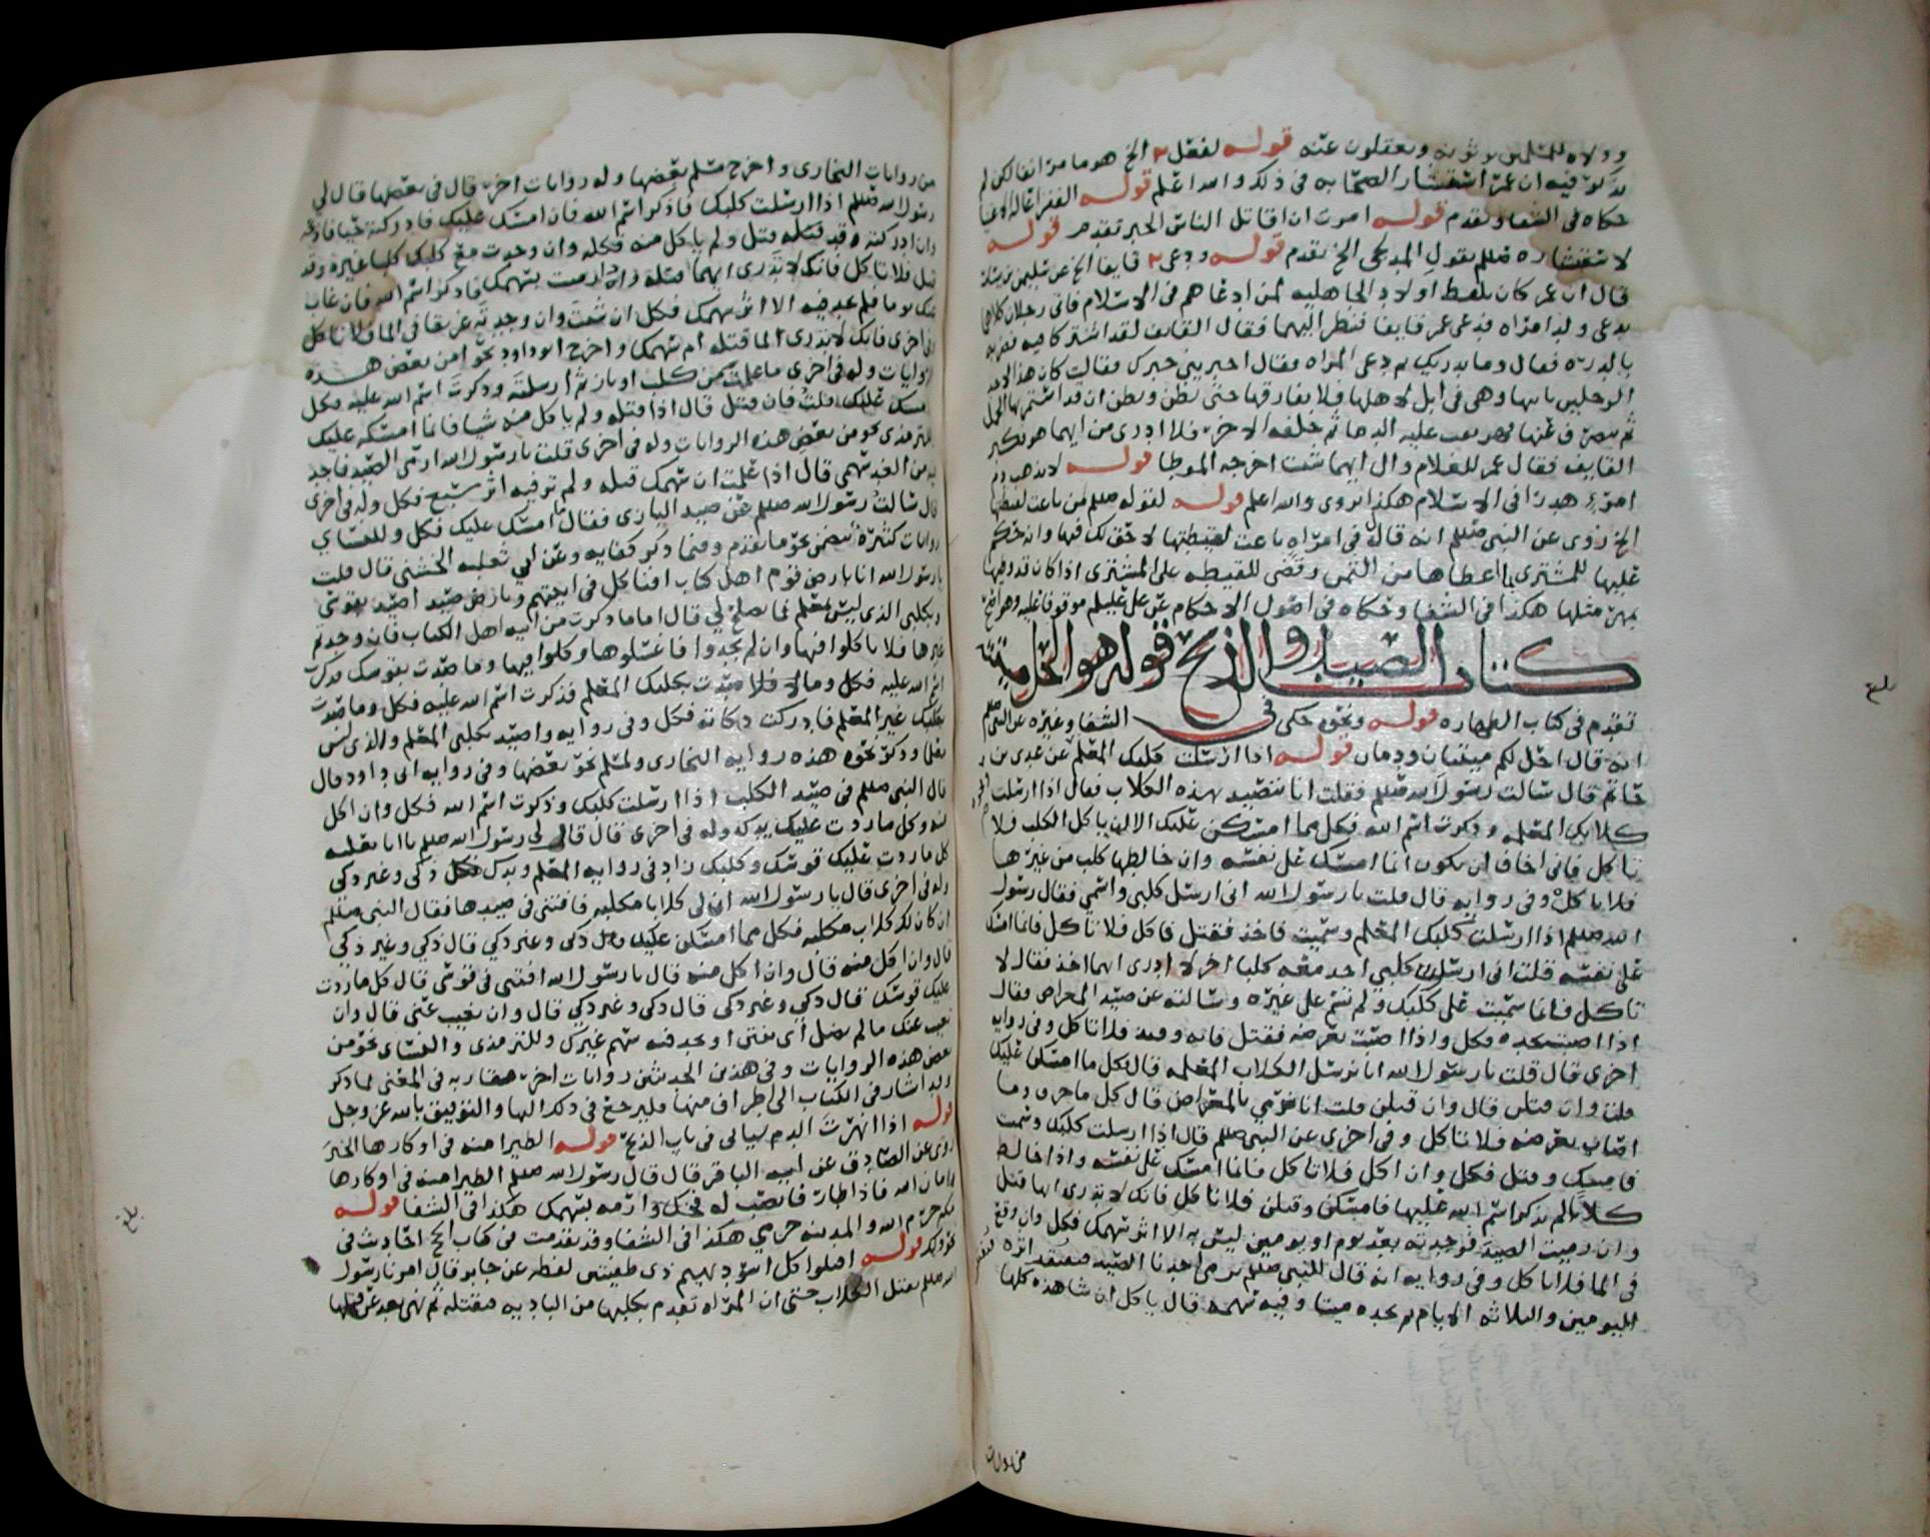 وولاه للمسلمين يرثونه ويعقلون عنه قوله لفعل الخ هو ما مر انفا لكن لم
يذكر فيه ان عمر استشار الصحابه في ذلك والله اعلم قوله
حكاه في الشفا وتقدم قوله امرت ان اقاتل الناس الخبر تقدم قوله
لاستفتاره صللم بقول المدلجي الخ تقدم قوله ودعى قايفا الخ عن سليمن بن يسار
قال ان عمر كان يلحق اولاد الجاهليه بمن ادعاهم في الاسلام فاتى رجلان كلاهما
يدعى ولد امراه فدعى عمر قايفا فنظر اليهما فقال القايف لقد اشتركا فيه فضربه
بالدره فقال وما يدريك ثم دعى المراه فقال اخبريني خبرك فقالت كان هذا لاحد
الرجلين ياتيها وهي في ابل لاهلها فلا يفارقها حتى يظن وتظن ان قد استمر بها الحمل
ثم ينصرف عنها فهريقت عليه الدما ثم خلفه الاخر فلا ادري من ايهما هو فكبر
القايف فقال عمر للغلام وال ايهما شئت اخرجه الموطا قوله لا يذهب دم
امرئ هدرا في الاسلام هكذا روى والله اعلم قوله لقوله صللم لمن باعت لقيطها
الخ روى عن النبي صللم انه قال في امراه باعت لقيطتها لا حق لك فيها وانه حكم
عليها للمشتري بما اعطاها من الثمن وقضى للقيطه على المشتري اذا كان قد وطيها
بمهر مثلها هكذا في الشفا وحكاه في اصول الاحكام عن علي عليلم موقوفا عليه وهو اصح
كتاب الصيد والذبح قوله هو الحل ميتته
تقدم في كتاب الطهاره قوله ونحوه حكى في الشفا وغيره عن النبي صللم
انه قال احل لكم ميتتان ودمان قوله اذا ارسلت كلبك المعلم عن عدي بن
حاتم قال سالت رسول الله صللم فقلت انا نتصيد بهذه الكلاب فقال اذا ارسلت
كلابك المعلمه وذكرت اسم الله فكل مما امسكن عليك الا ان ياكل الكلب فلا
تاكل فاني اخاف ان يكون انما امسك على نفسه وان خالطها كلب من غيرها
فلا تاكل وفي روايه قال قلت يا رسول الله اني ارسل كلبي واسمي فقال رسول
الله صللم اذا ارسلت كلبك المعلم وسميت فاخذ فقتل فاكل فلا تاكل فانما امسك
على نفسه قلت اني ارسلت كلبي اجد معه كلبا اخر لا ادري ايهما اخذ فقال لا
تاكل فانما سميت على كلبك ولم تسم على غيره وسالته عن صيد المعراض فقال
اذا اصبت بحده فكل واذا اصبت بعرضه فقتل فانه وقيذ فلا تاكل وفي روايه
اخرى قال قلت يا رسول الله انا نرسل الكلاب المعلمه قال كل ما امسكن عليك
قلت وان قتلن قال وان قتلن قلت انا نرمي بالمعراض قال كل ما خرق وما
اصاب بعرضه فلا تاكل وفي اخرى عن النبي صللم قال اذا ارسلت كلبك وسميت
فامسك وقتل فكل وان اكل فلا تاكل فانما امسك على نفسه واذا خالط
كلابا لم يذكر اسم الله عليها فامسكن وقتلن فلا تاكل فانك لا تدري ايها قتل
وان رميت الصيد فوجدته بعد يوم او يومين ليس به الا اثر سهمك فكل وان وقع
في الما فلا تاكل وفي روايه انه قال للنبي صللم يرمي احدنا الصيد فيفتقد اثره
اليومين والثلاثه الايام ثم يجده ميتا وفيه سهمه قال ياكل ان شا هذه كلها
من روايات
من روايات البخاري واخرج مسلم بعضها وله روايات اخر قال في بعضها قال لي
رسول الله صللم اذا ارسلت كلبك فاذكر اسم الله فان امسك عليك فادركته حيا فاذبحه
وان ادركته وقد قتله ولم ياكل منه فكله وان وجدت مع كلبك كلبا غيره وقد
قتل فلا تاكل فانك لا تدري ايهما قتله وان رميت بسهمك فاذكر اسم الله فان غاب
عنك يوما فلم تجد فيه الا اثر سهمك فكل ان شئت وان وجدته غريقا في الما فلا تاكل
وفي اخرى فانك لا تدري الما قتله ام سهمك واخرج ابو داود نحوا من بعض هذه
الروايات وله في اخرى ما علمت من كلب او باز ثم ارسلته وذكرت اسم الله عليه فكل
مما امسك عليك قلت فان قتل قال اذا قتله ولم ياكل منه شيا فانما امسكه عليك
وللترمذي نحو من بعض هذه الروايات وله في اخرى قلت يا رسول الله ارمي الصيد فاجد
فيه من الغد سهمي قال اذا علمت ان سهمك قتله ولم تر فيه اثر سبع فكل وله في اخرى
قال سالت رسول الله صللم عن صيد البازي فقال ما امسك عليك فكل وللنساي
روايات كثيرة تتضمن نحو ما تقدم وفيما ذكر كفايه وعن ابي ثعلبه الخشني قال قلت
يا رسول الله انا بارض قوم اهل كتاب افناكل في انيتهم وبارض صيد اصيد بقوسي
وبكلبي الذي ليس بمعلم فما يصلح لي قال اما ما ذكرت من انيه اهل الكتاب فان وجدتم
غيرها فلا تاكلوا فيها وان لم تجدوا فاغسلوها وكلوا فيها وما صدت بقوسك فذكرت
اسم الله عليه فكل وما صدت بكلبك المعلم فذكرت اسم الله عليه فكل وما صدت
بكلبك غير المعلم فادركت ذكاته فكل وفي روايه واصيد بكلبي المعلم والذي ليس
بمعلم وذكر نحوه هذه روايه البخاري ولمسلم نحو بعضها وفي روايه ابي داود قال
قال النبي صللم في صيد الكلب اذا ارسلت كلبك وذكرت اسم الله فكل وان اكل
منه وكل ما ردت عليك يدك وله في اخرى قال قال لي رسول الله صللم يا ابا ثعلبه
كل ما ردت عليك قوسك وكلبك زاد في روايه المعلم ويدك فكل ذكي وغير ذكي
وله في اخرى قال يا رسول الله ان لي كلابا مكلبه فافتني في صيدها فقال النبي صللم
ان كان لك كلاب مكلبه فكل مما امسكن عليك قال ذكي وغير ذكي قال ذكي وغير ذكي
قال وان اكل منه قال وان اكل منه قال يا رسول الله افتني في قوسي قال كل ما ردت
عليك قوسك قال ذكي وغير ذكي قال ذكي وغير ذكي قال وان تغيب عني قال وان
تغيب عنك ما لم يصل أي ينتن او تجد فيه سهم غيرك وللترمذي والنساي نحو من
بعض هذه الروايات وفي هذين الحديثين روايات اخر متقاربه في المعنى لما ذكر
وقد اشار في الكتاب الى اطراف منها فليرجع في ذلك اليها والتوفيق بالله عز وجل
قوله اذا انهرت الدم سياتي في باب الذبح قوله الطير امنه في اوكارها الخبر
روى عن الصادق عن ابيه الباقر قال قال رسول الله صللم الطير امنه في اوكارها
بامان الله فاذا طارت فانصب له فخك وارمه بسهمك هكذا في الشفا قوله
مكه حرم الله والمدينه حرمي هكذا في الشفا وقد تقدمت في كتاب الحج احاديث في
نحو ذلك قوله اقتلوا كل اسود بهيم ذي طفيتين لفظه عن جابر قال امرنا رسول
الله صللم بقتل الكلاب حتى ان المراه تقدم بكلبها من الباديه فنقتله ثم نهى بعد عن قتلها